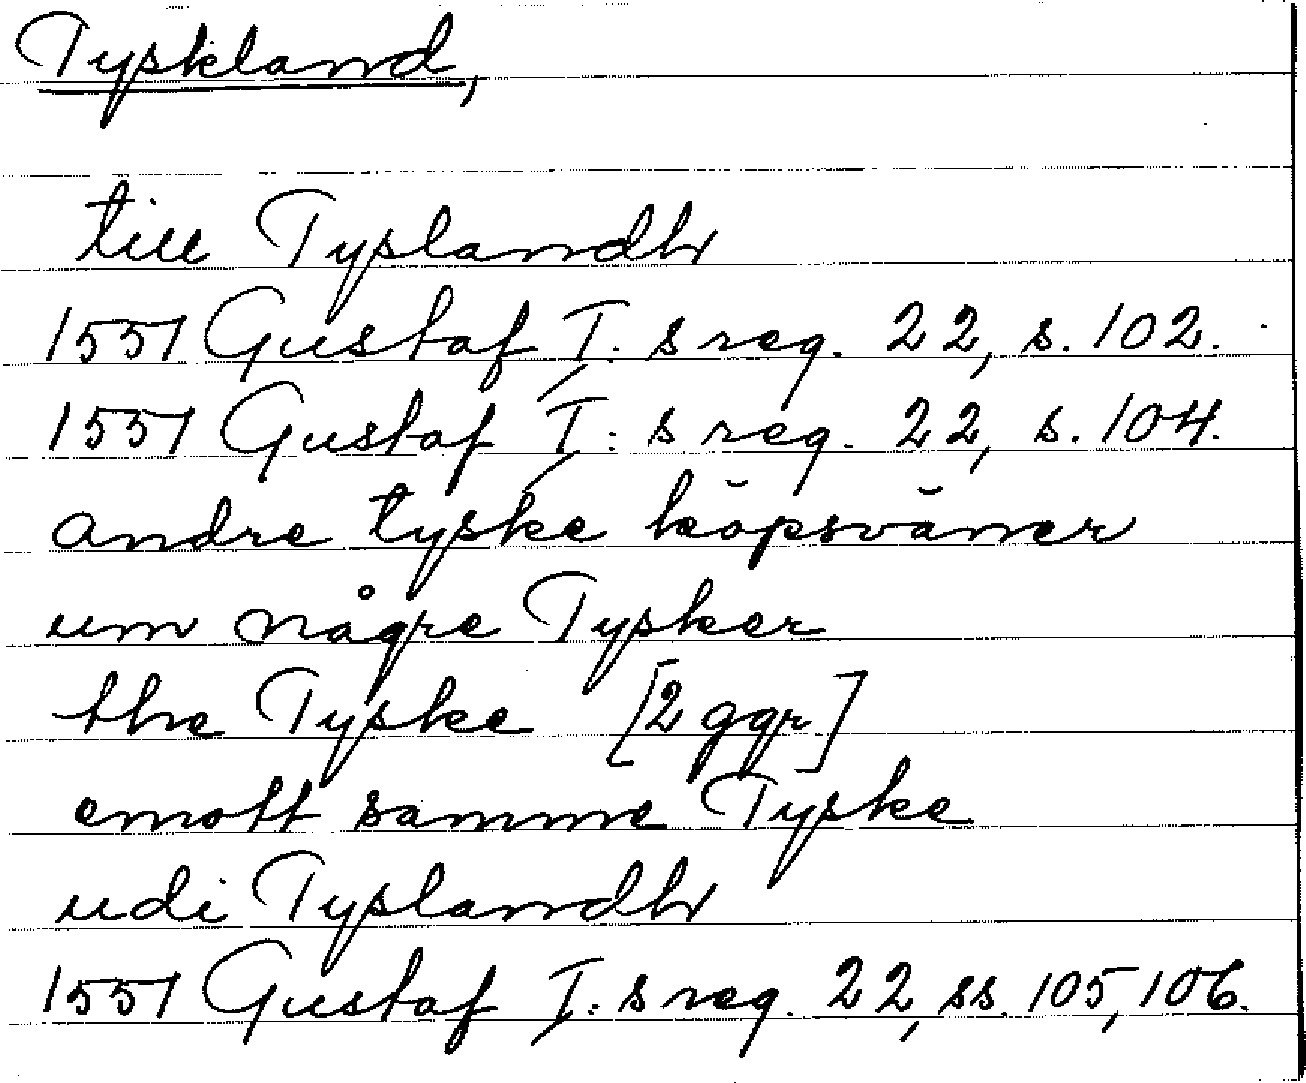 Tyskland,
till Tyslandh
1551 Gustaf I: s reg. 22, s. 102.
1551 Gustaf I: s reg. 22, s. 104.
andre tyske köpsväner
um någre Tysker
the Tyske [2 ggr]
emott samme Tyske
udi Tyslandh
1551 Gustaf I: s reg. 22, ss. 105, 106.